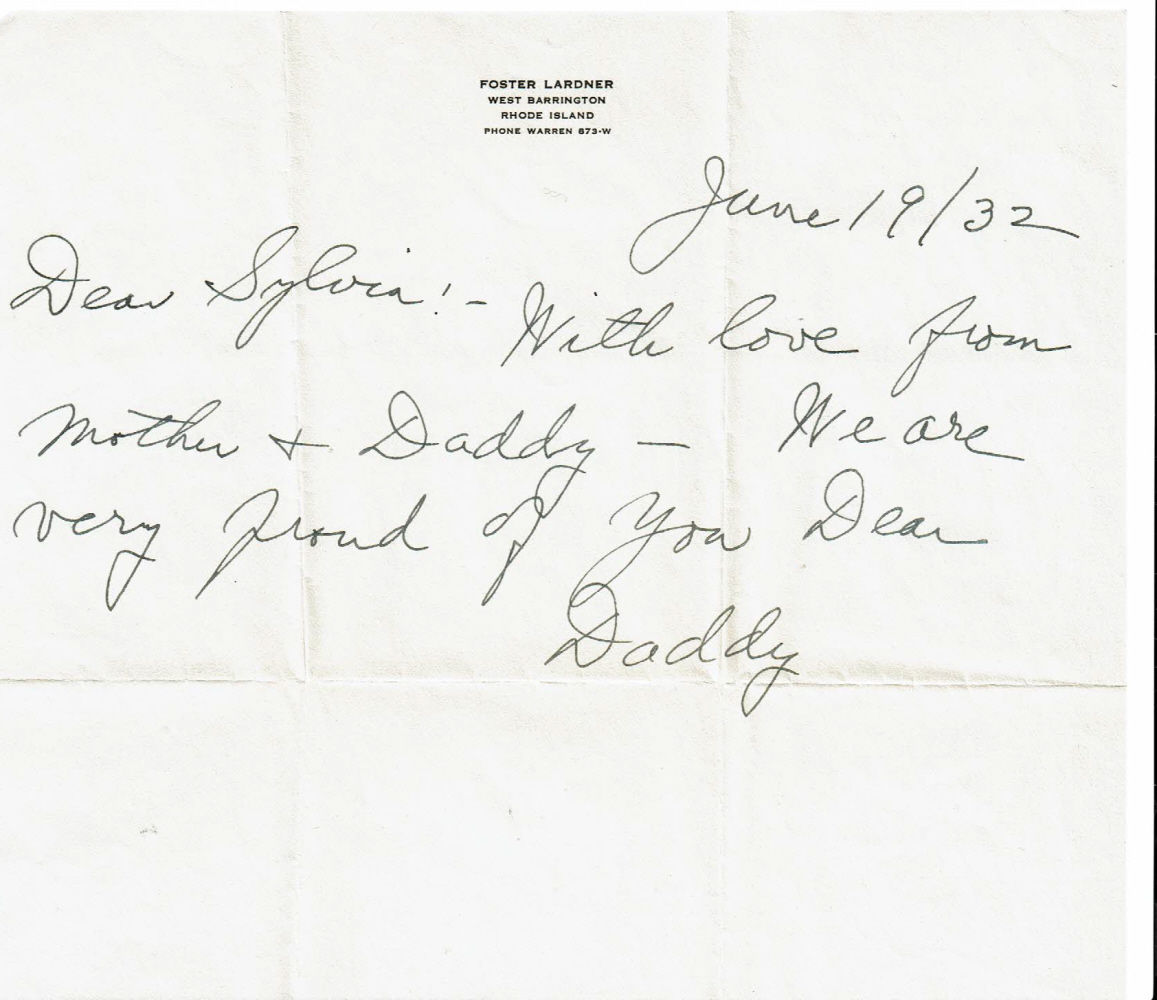 FOSTER LARDNER
WEST BARRINGTON
RHODE ISLAND
PHONE WARREN 673-W
June 19/32
Dear Sylvia!-
With love from
Mother + Daddy — We are
very proud of you Dear
Daddy